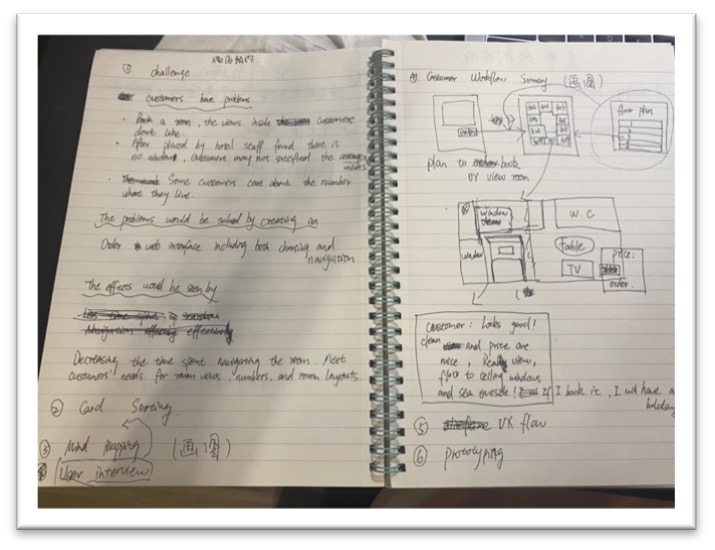 ① challenge
customers have problems
• Book a room, the views inside customers
dont like.
• After placed by hotel staff found there is
no window, customers may not satisfied the
• Some customers care about the number
where they live.
The problems would be solved by creating an
Order web interface including both choosing and
navigation
The effects would be seen by
Decreasing the time spent navigating the room. Meet
customers' needs for room views, numbers, and room layouts.
② Card Sorting
③ Mind Mapping (画图)
User interview
④ Customer Workflow (画图)
floor plan
plan to book
or view room
window
W.C
window
table
TV
price:
order.
customer: Looks good!
clean and price are
nice, view,
floor to ceiling windows
and sea outside! If I book it, I will have a
holiday
⑤ UX flow
⑥ prototyping